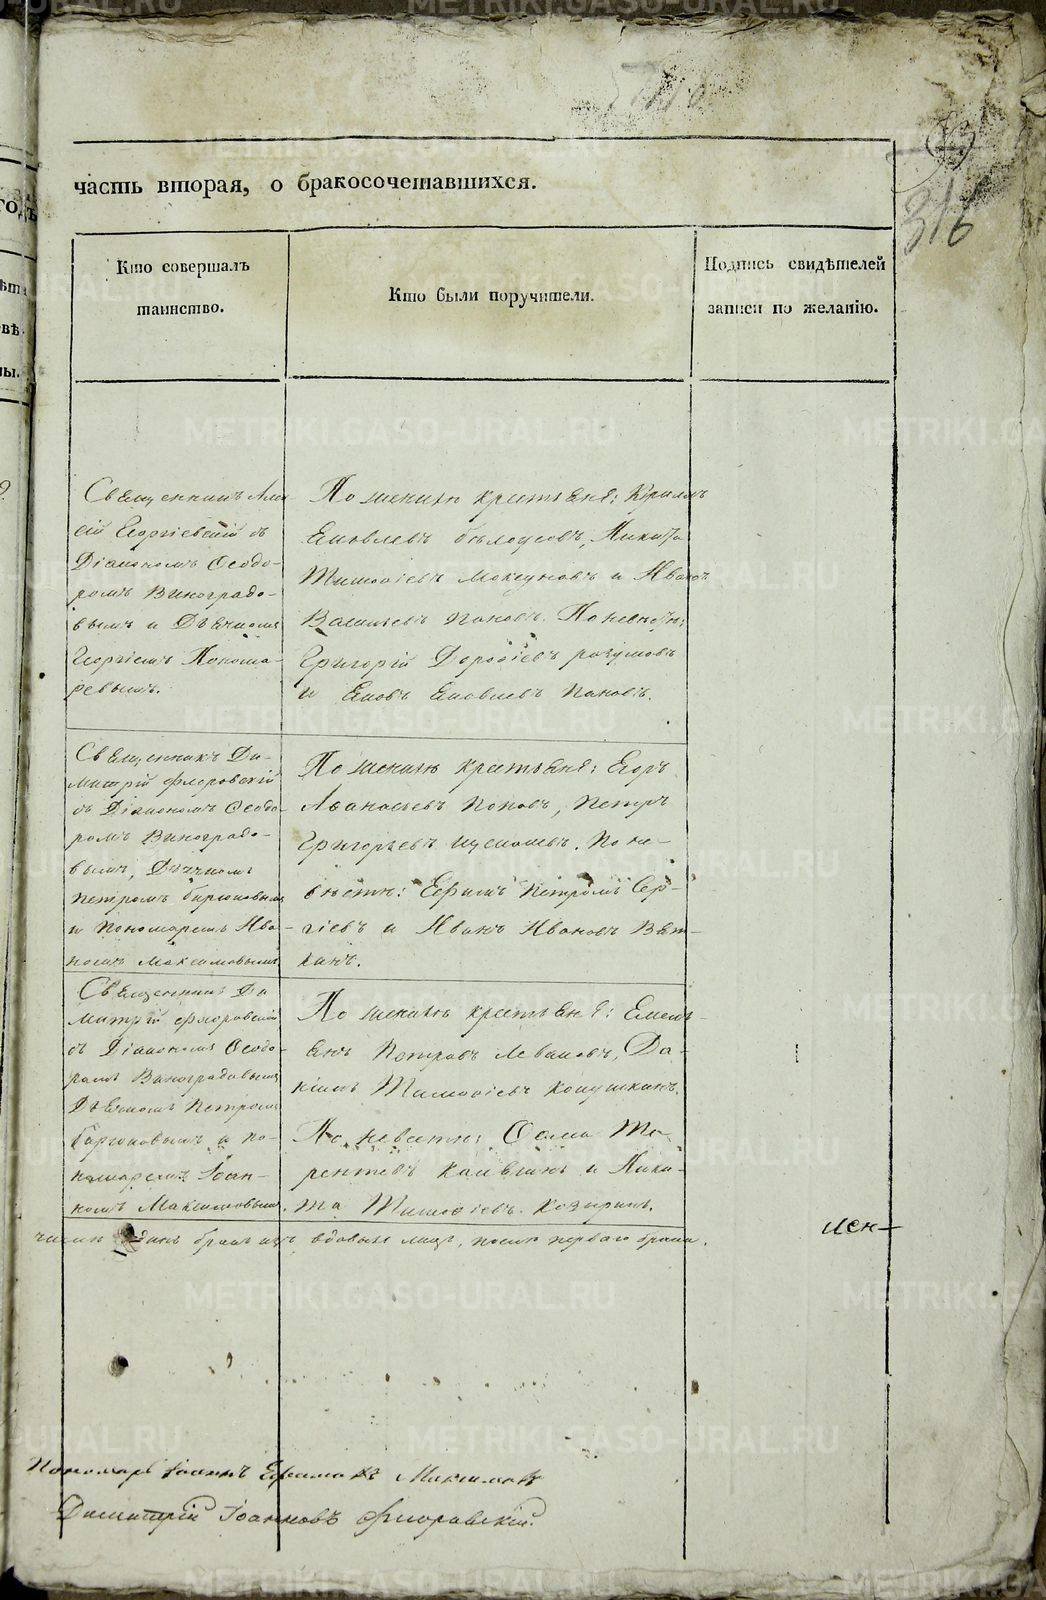 316
часть вторая, о бракосочетавшихся.
Кто совершалъ
таинство.
Кто были поручители.
Подпись свидѣтелей
записи по желанію.
Священникъ Але
сій Георгіевскій съ
Діакономъ Ѳеодо-
ромъ Виноградо-
вымъ и Дьячкомъ
Георгіемъ Понома-
ревымъ.
По женихѣ крестьяне: Кирилъ
Яковлевъ Бѣлоусовъ, Никита
Тимоѳіевъ и Иванъ
Васильевъ Поповъ. По невѣстѣ:
Григорій Дороѳіевъ Разумовъ
и Яковъ Яковлевъ Поповъ.
Священникъ Ди-
митрій Флоровскій
съ Діакономъ Ѳеодо-
ромъ Виноградо-
вымъ, Дьячкомъ
Петромъ Бирюковымъ
и Пономаремъ Ива-
номъ Максимовымъ
По женихѣ крестьяне: Егоръ
Аѳанасьевъ Поповъ, Петръ
Григорьевъ. По не-
вѣстѣ: Ефимъ Петровъ Сер-
гіевъ и Иванъ Ивановъ Вят-
кинъ.
Священникъ Ди
митрій Флоровскій
съ Діакономъ Ѳеодо-
ромъ Виноградовымъ
Дьячкомъ Петромъ
Бирюковымъ и по-
номаремъ Іоан-
номъ Максимовымъ.
По женихѣ крестьяне: Емель-
янъ Петровъ Левановъ, Да-
Тимоѳіевъ Копушкинъ.
По невѣстѣ: Ѳома Те-
рентьевъ и Ники-
та Тимоѳіевъ Козыринъ.
бракъ вдовыхъ лицъ, послѣ перваго брака.
лен-
Пономарь Іоаннъ Ефимовъ Максимовъ
Димитрій Іоанновъ Флоровскій.
METRIKI.GASO-URAL.RU